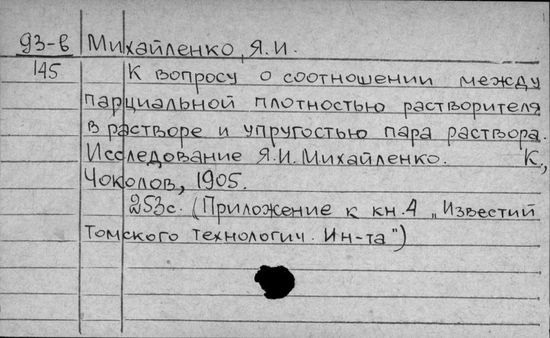 93-в Михайленко, Я.И.
145 К вопросу о соотношении между
парциальной плотностью растворителя
в растворе и упругостью пара раствора.
Исследование Я.И. Михайленко. К.,
Чоколов, 1905.
253с. (Приложение к кн.4 „Известий
Томского технологич. Ин-та")